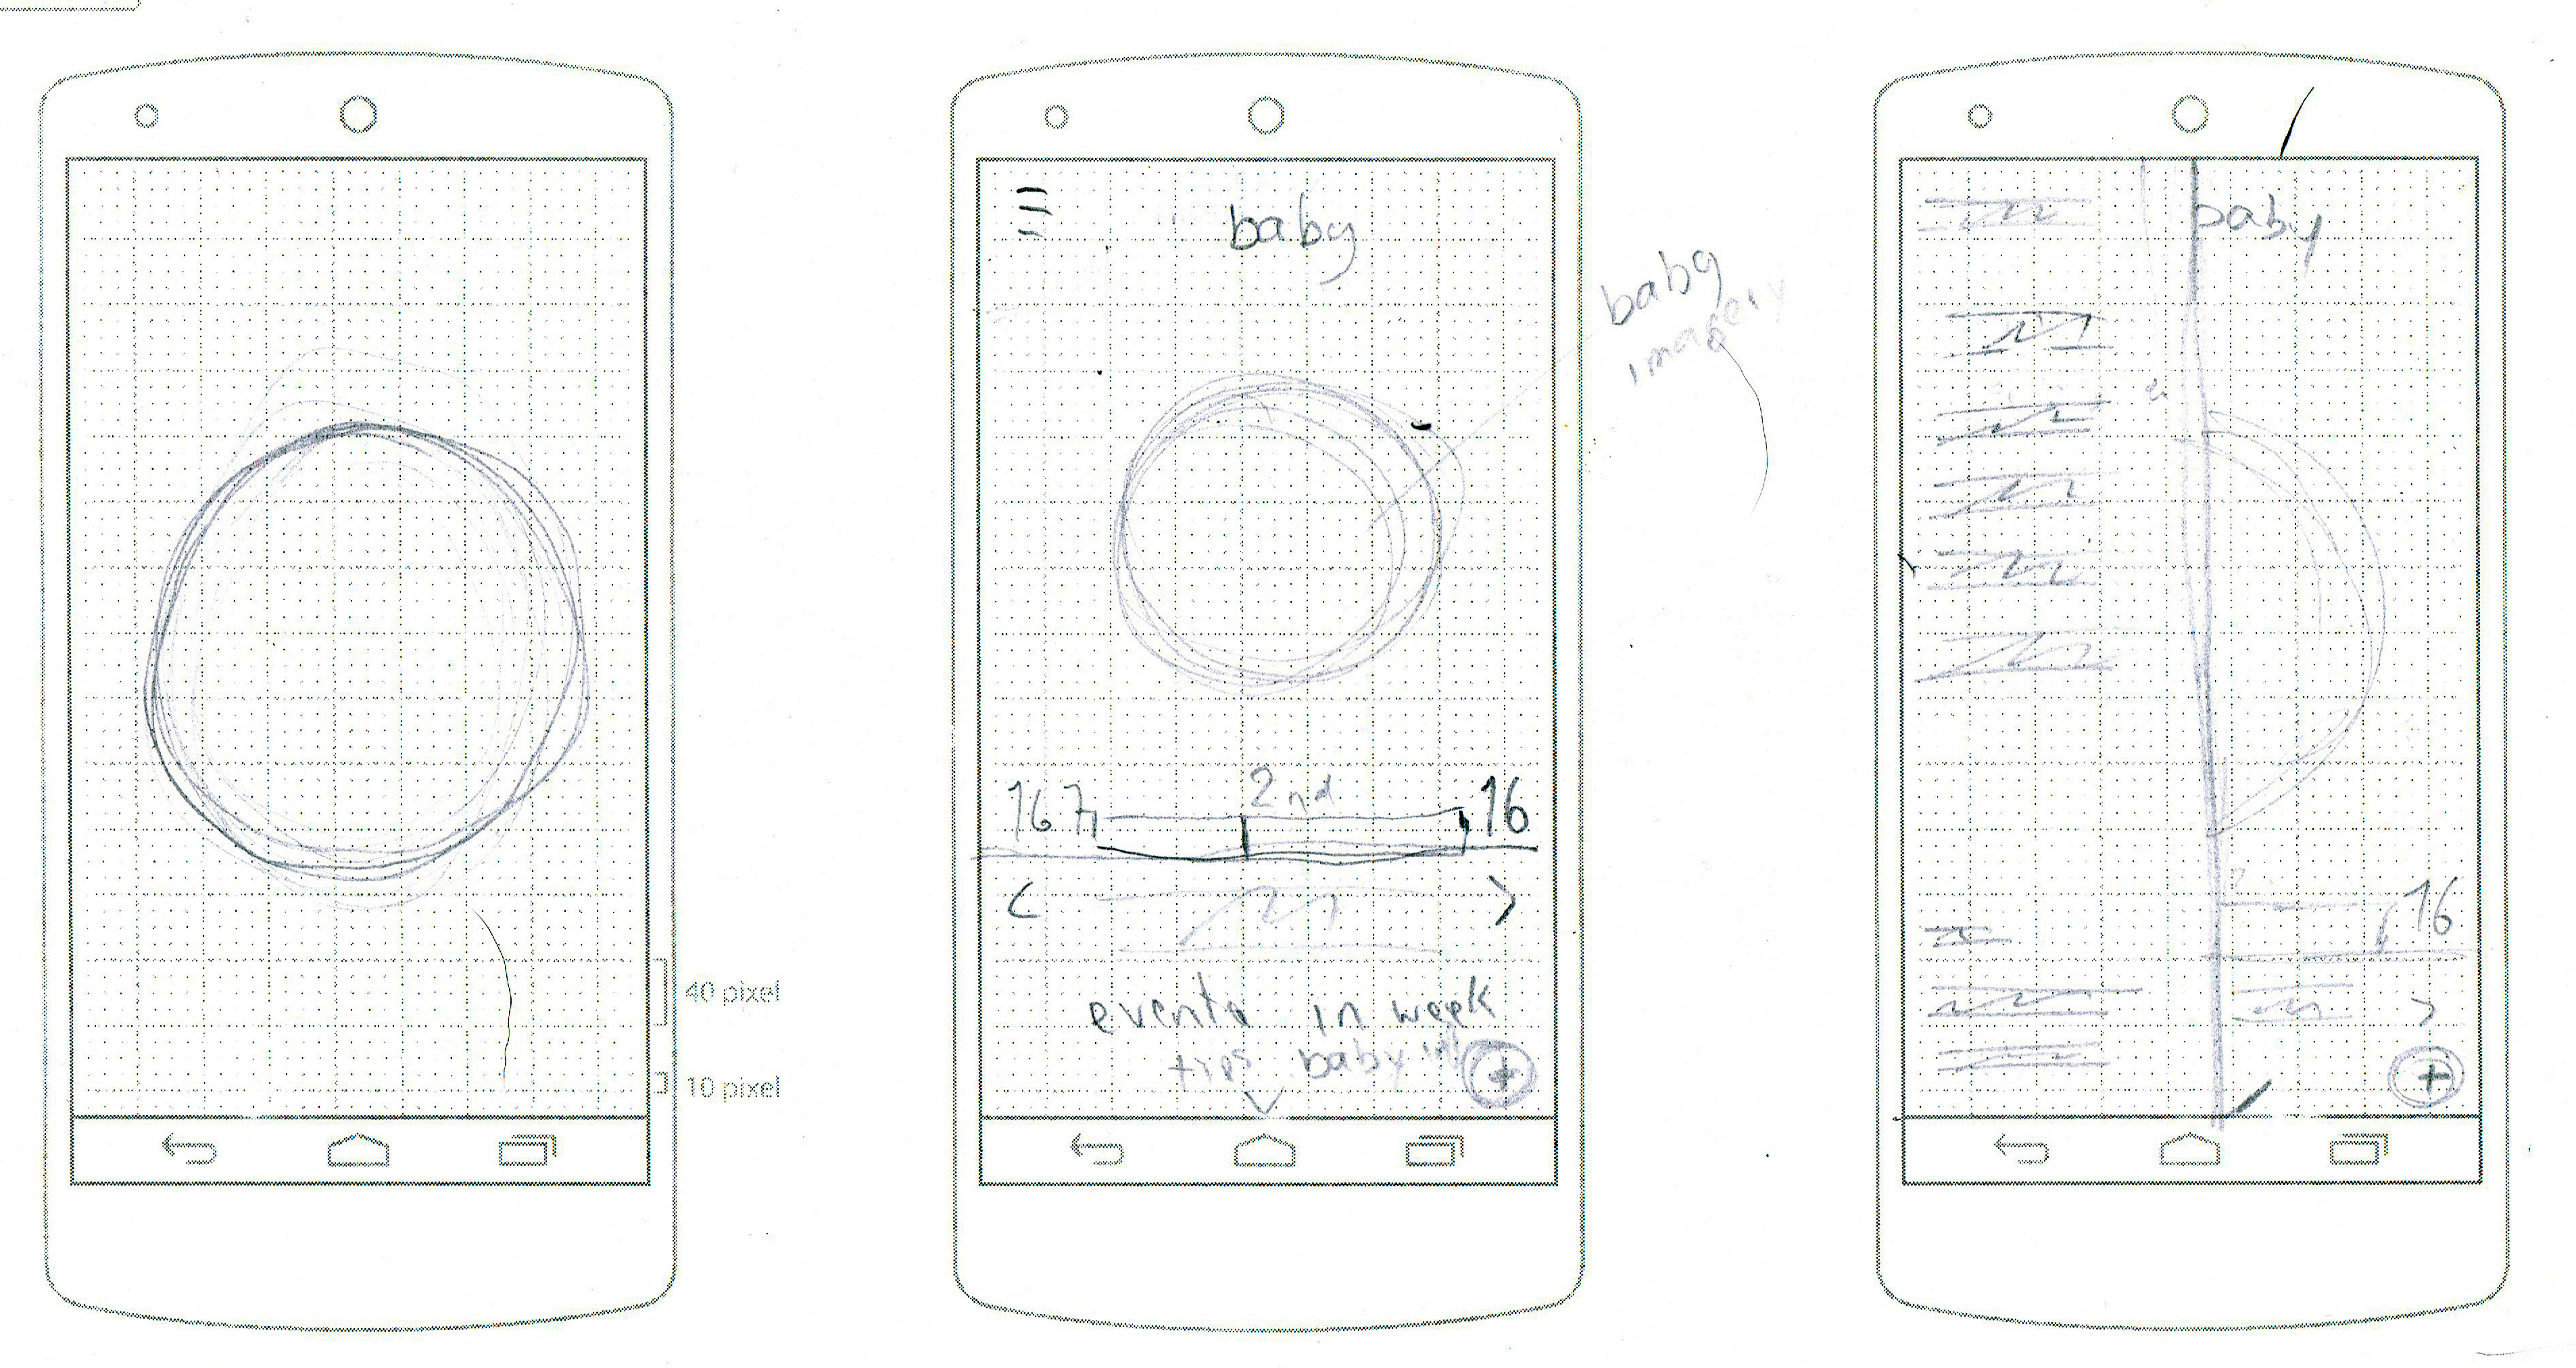 40 pixel
10 pixel
baby
baby
imagery
2nd
167
16
<
>
events in week
tips baby
+
baby
16
>
+